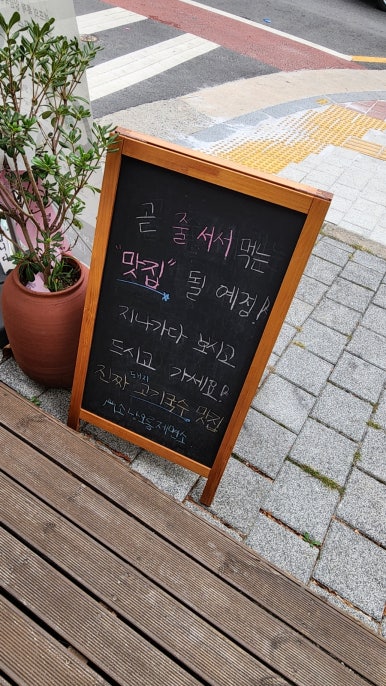 곧 줄 서서 먹는
"맛집" 될 예정!
지나가다 보시고
드시고 가세요!
진짜 고기국수 맛집